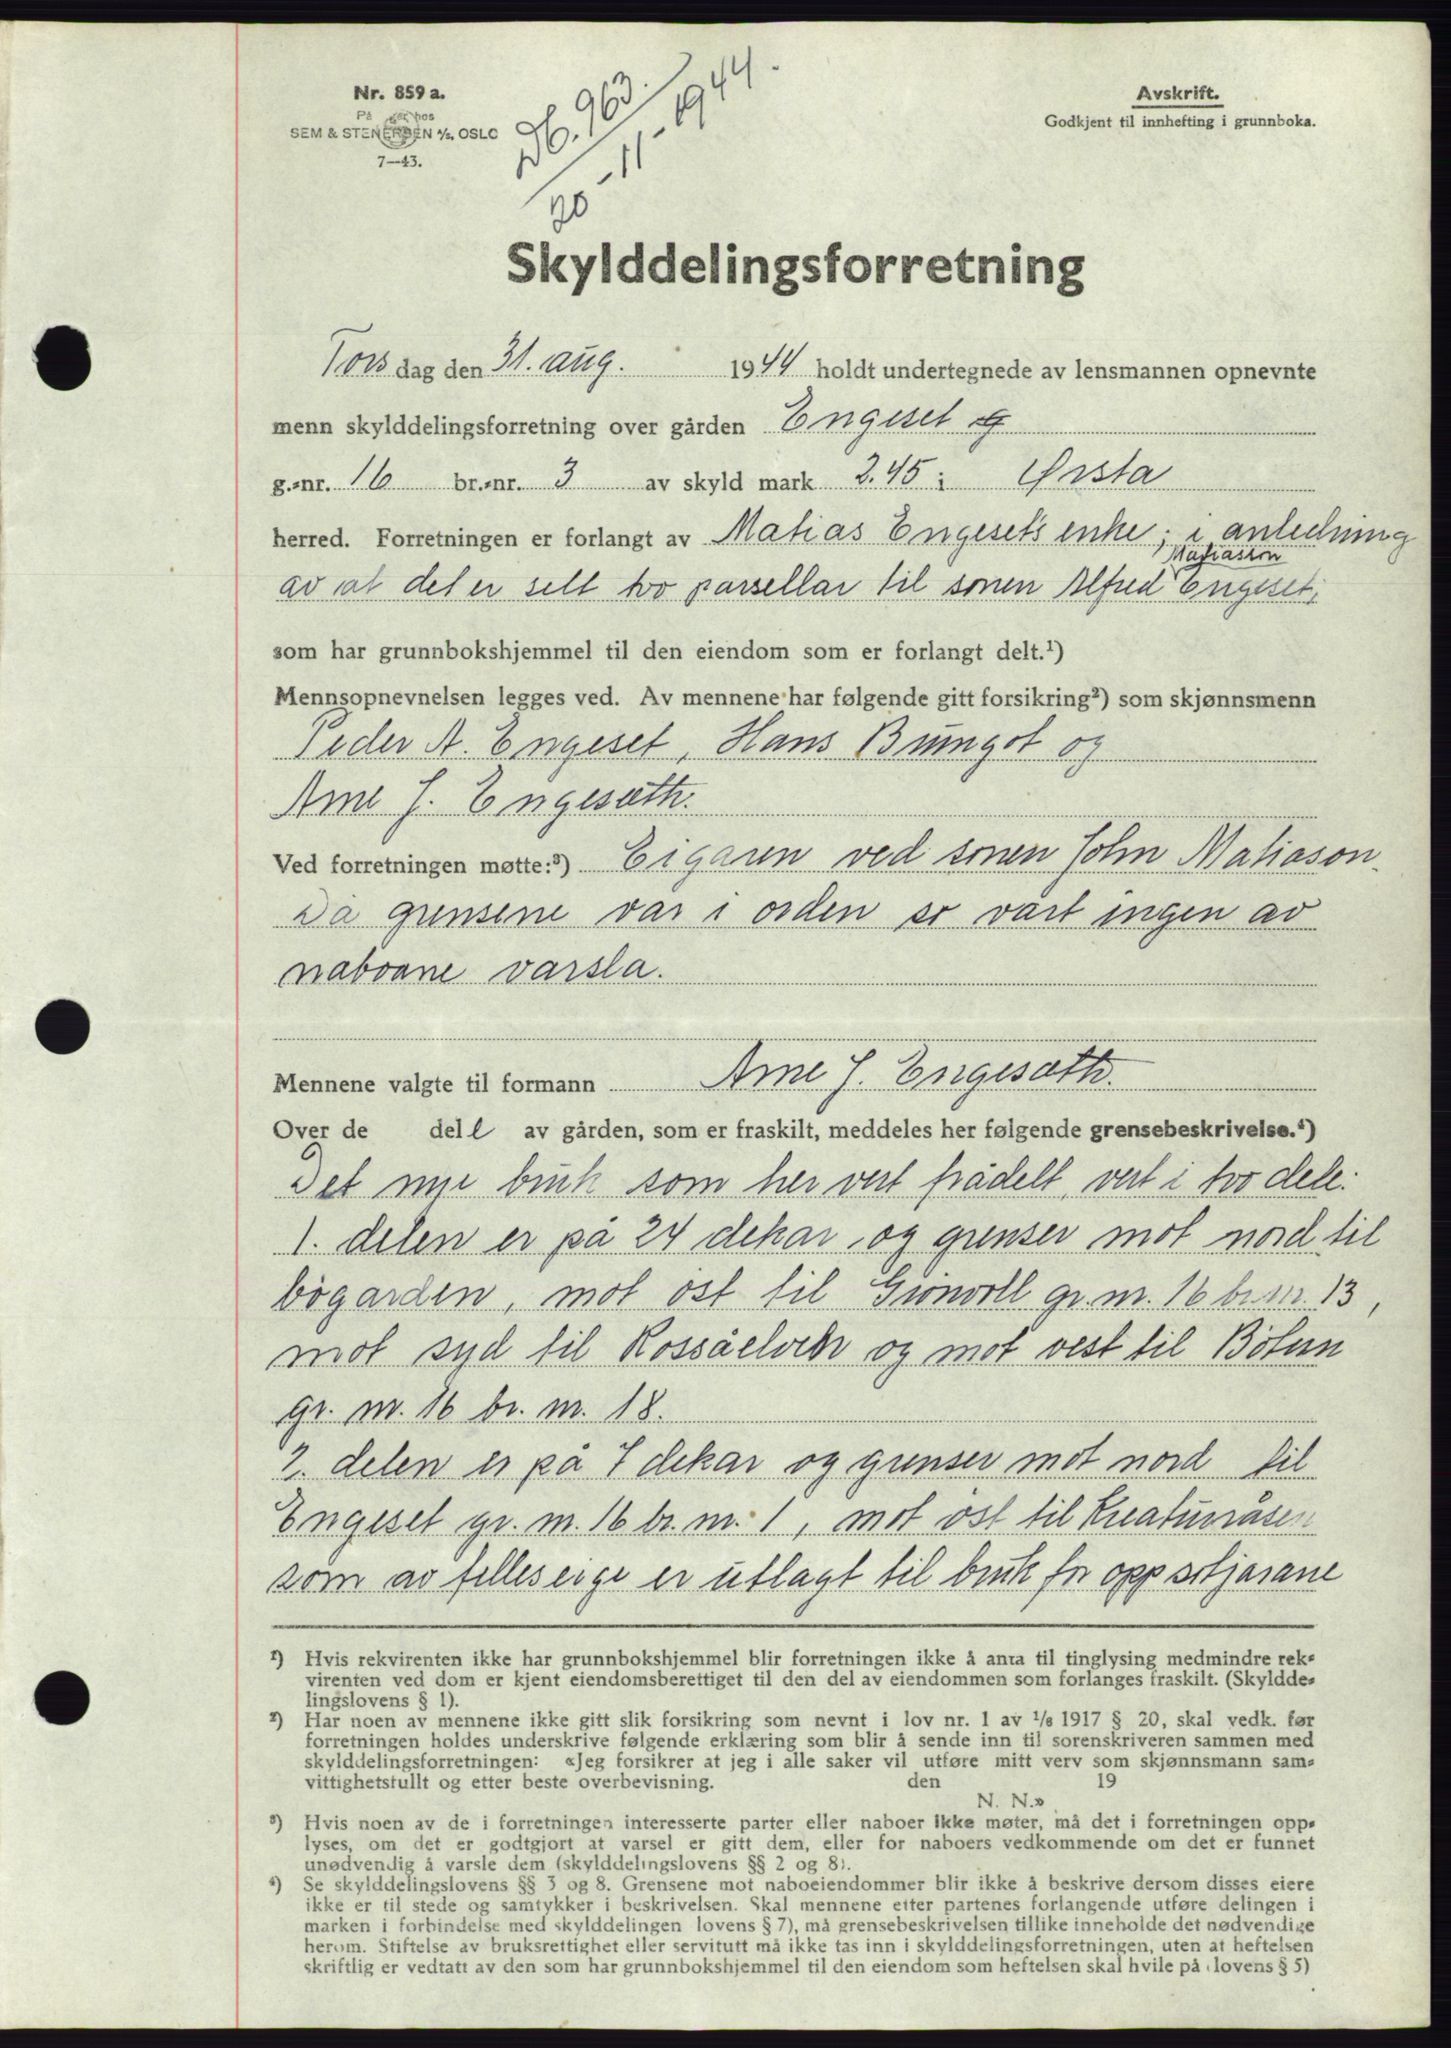 Nr. 859 a.
På lager hos
SEM & STENERSEN A/S, OSLO
7—43.
Db. 963.
20-11-1944.
Avskrift.
Godkjent til innhefting i grunnboka.
Skylddelingsforretning
Torsdag den 31. aug. 1944 holdt undertegnede av lensmannen opnevnte
menn skylddelingsforretning over gården Engeset
g.-nr. 16 br.-nr. 3 av skyld mark 2.45 i Ørsta
herred. Forretningen er forlangt av Matias Engeset's enke; i anledning
Matiasson
av at det er selt tvo parsellar til sonen Alfred Engeset,
som har grunnbokshjemmel til den eiendom som er forlangt delt.¹)
Mennsopnevnelsen legges ved. Av mennene har følgende gitt forsikring²) som skjønnsmenn
Peder A. Engeset, Hans Bungot og
Arne J. Engesæth.
Ved forretningen møtte:³) Eigaren ved sonen John Matiason.
Då grensene var i orden so vart ingen av
naboane varsla.
Mennene valgte til formann Arne J. Engesæth.
Over de del l av gården, som er fraskilt, meddeles her følgende grensebeskrivelse.⁴)
Det nye bruk som her vert frådelt, vert i tvo dele:
1. delen er på 24 dekar, og grenser mot nord til
bøgarden, mot øst til Grønvoll gr. nr. 16 br. nr. 13,
mot syd til Rossåelven og mot vest til Bøtun
gr. nr. 16 br. nr. 18.
2. delen er på 7 dekar og grenser mot nord til
Engeset gr. nr. 16 br. nr. 1, mot øst til Kreaturråsen
som av felleseige er utlagt til bruk for oppsitjarane
¹) Hvis rekvirenten ikke har grunnbokshjemmel blir forretningen ikke å anta til tinglysing medmindre rek-
virenten ved dom er kjent eiendomsberettiget til den del av eiendommen som forlanges fraskilt. (Skyldde-
lingslovens § 1).
²) Har noen av mennene ikke gitt slik forsikring som nevnt i lov nr. 1 av ¹/₈ 1917 § 20, skal vedk. før
forretningen holdes underskrive følgende erklæring som blir å sende inn til sorenskriveren sammen med
skylddelingsforretningen: «Jeg forsikrer at jeg i alle saker vil utføre mitt verv som skjønnsmann sam-
vittighetsfullt og etter beste overbevisning. den 19
N. N.»
³) Hvis noen av de i forretningen interesserte parter eller naboer ikke møter, må det i forretningen opp-
lyses, om det er godtgjort at varsel er gitt dem, eller for naboers vedkommende om det er funnet
unødvendig å varsle dem (skylddelingslovens §§ 2 og 8).
⁴) Se skylddelingslovens §§ 3 og 8. Grensene mot naboeiendommer blir ikke å beskrive dersom disses eiere
ikke er til stede og samtykker i beskrivelsen. Skal mennene etter partenes forlangende utføre delingen i
marken i forbindelse med skylddelingen lovens § 7), må grensebeskrivelsen tillike inneholde det nødvendige
herom. Stiftelse av bruksrettighet eller servitutt må ikke tas inn i skylddelingsforretningen, uten at heftelsen
skriftlig er vedtatt av den som har grunnbokshjemmel til den eiendom som heftelsen skal hvile på (lovens § 5)